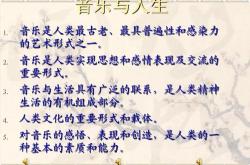 音乐与人生
1. 音乐是人类最古老、最具普遍性和感染力
的艺术形式之一。
2. 音乐是人类实现思想和情感表现及交流的
重要形式。
3. 音乐与生活具有广泛的联系，是人类精神
生活的有机组成部分。
4. 人类文化的重要形式和载体。
5. 对音乐的感悟、表现和创造，是人类的一
种基本的素质和能力。